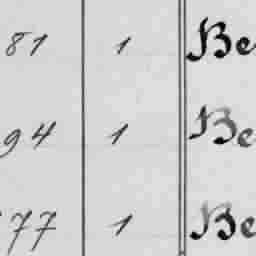 81 1 Be
94 1 Be
77 1 Be